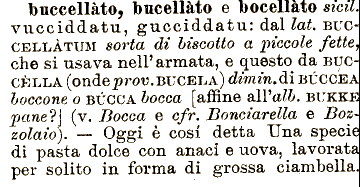 buccellàto, bucellàto e bocellàto sicil.
vucciddatu, gucciddatu: dal lat. BUC-
CELLÀTUM sorta di biscotto a piccole fette,
che si usava nell'armata, e questo da BUC-
CÈLLA (onde prov. BUCELA) dimin. di BÚCCEA
boccone o BÚCCA bocca [affine all'alb. BUKKE
pane?] (v. Bocca e cfr. Bonciarella e Boz-
zolaio). — Oggi è cosí detta Una specie
di pasta dolce con anaci e uova, lavorata
per solito in forma di grossa ciambella.